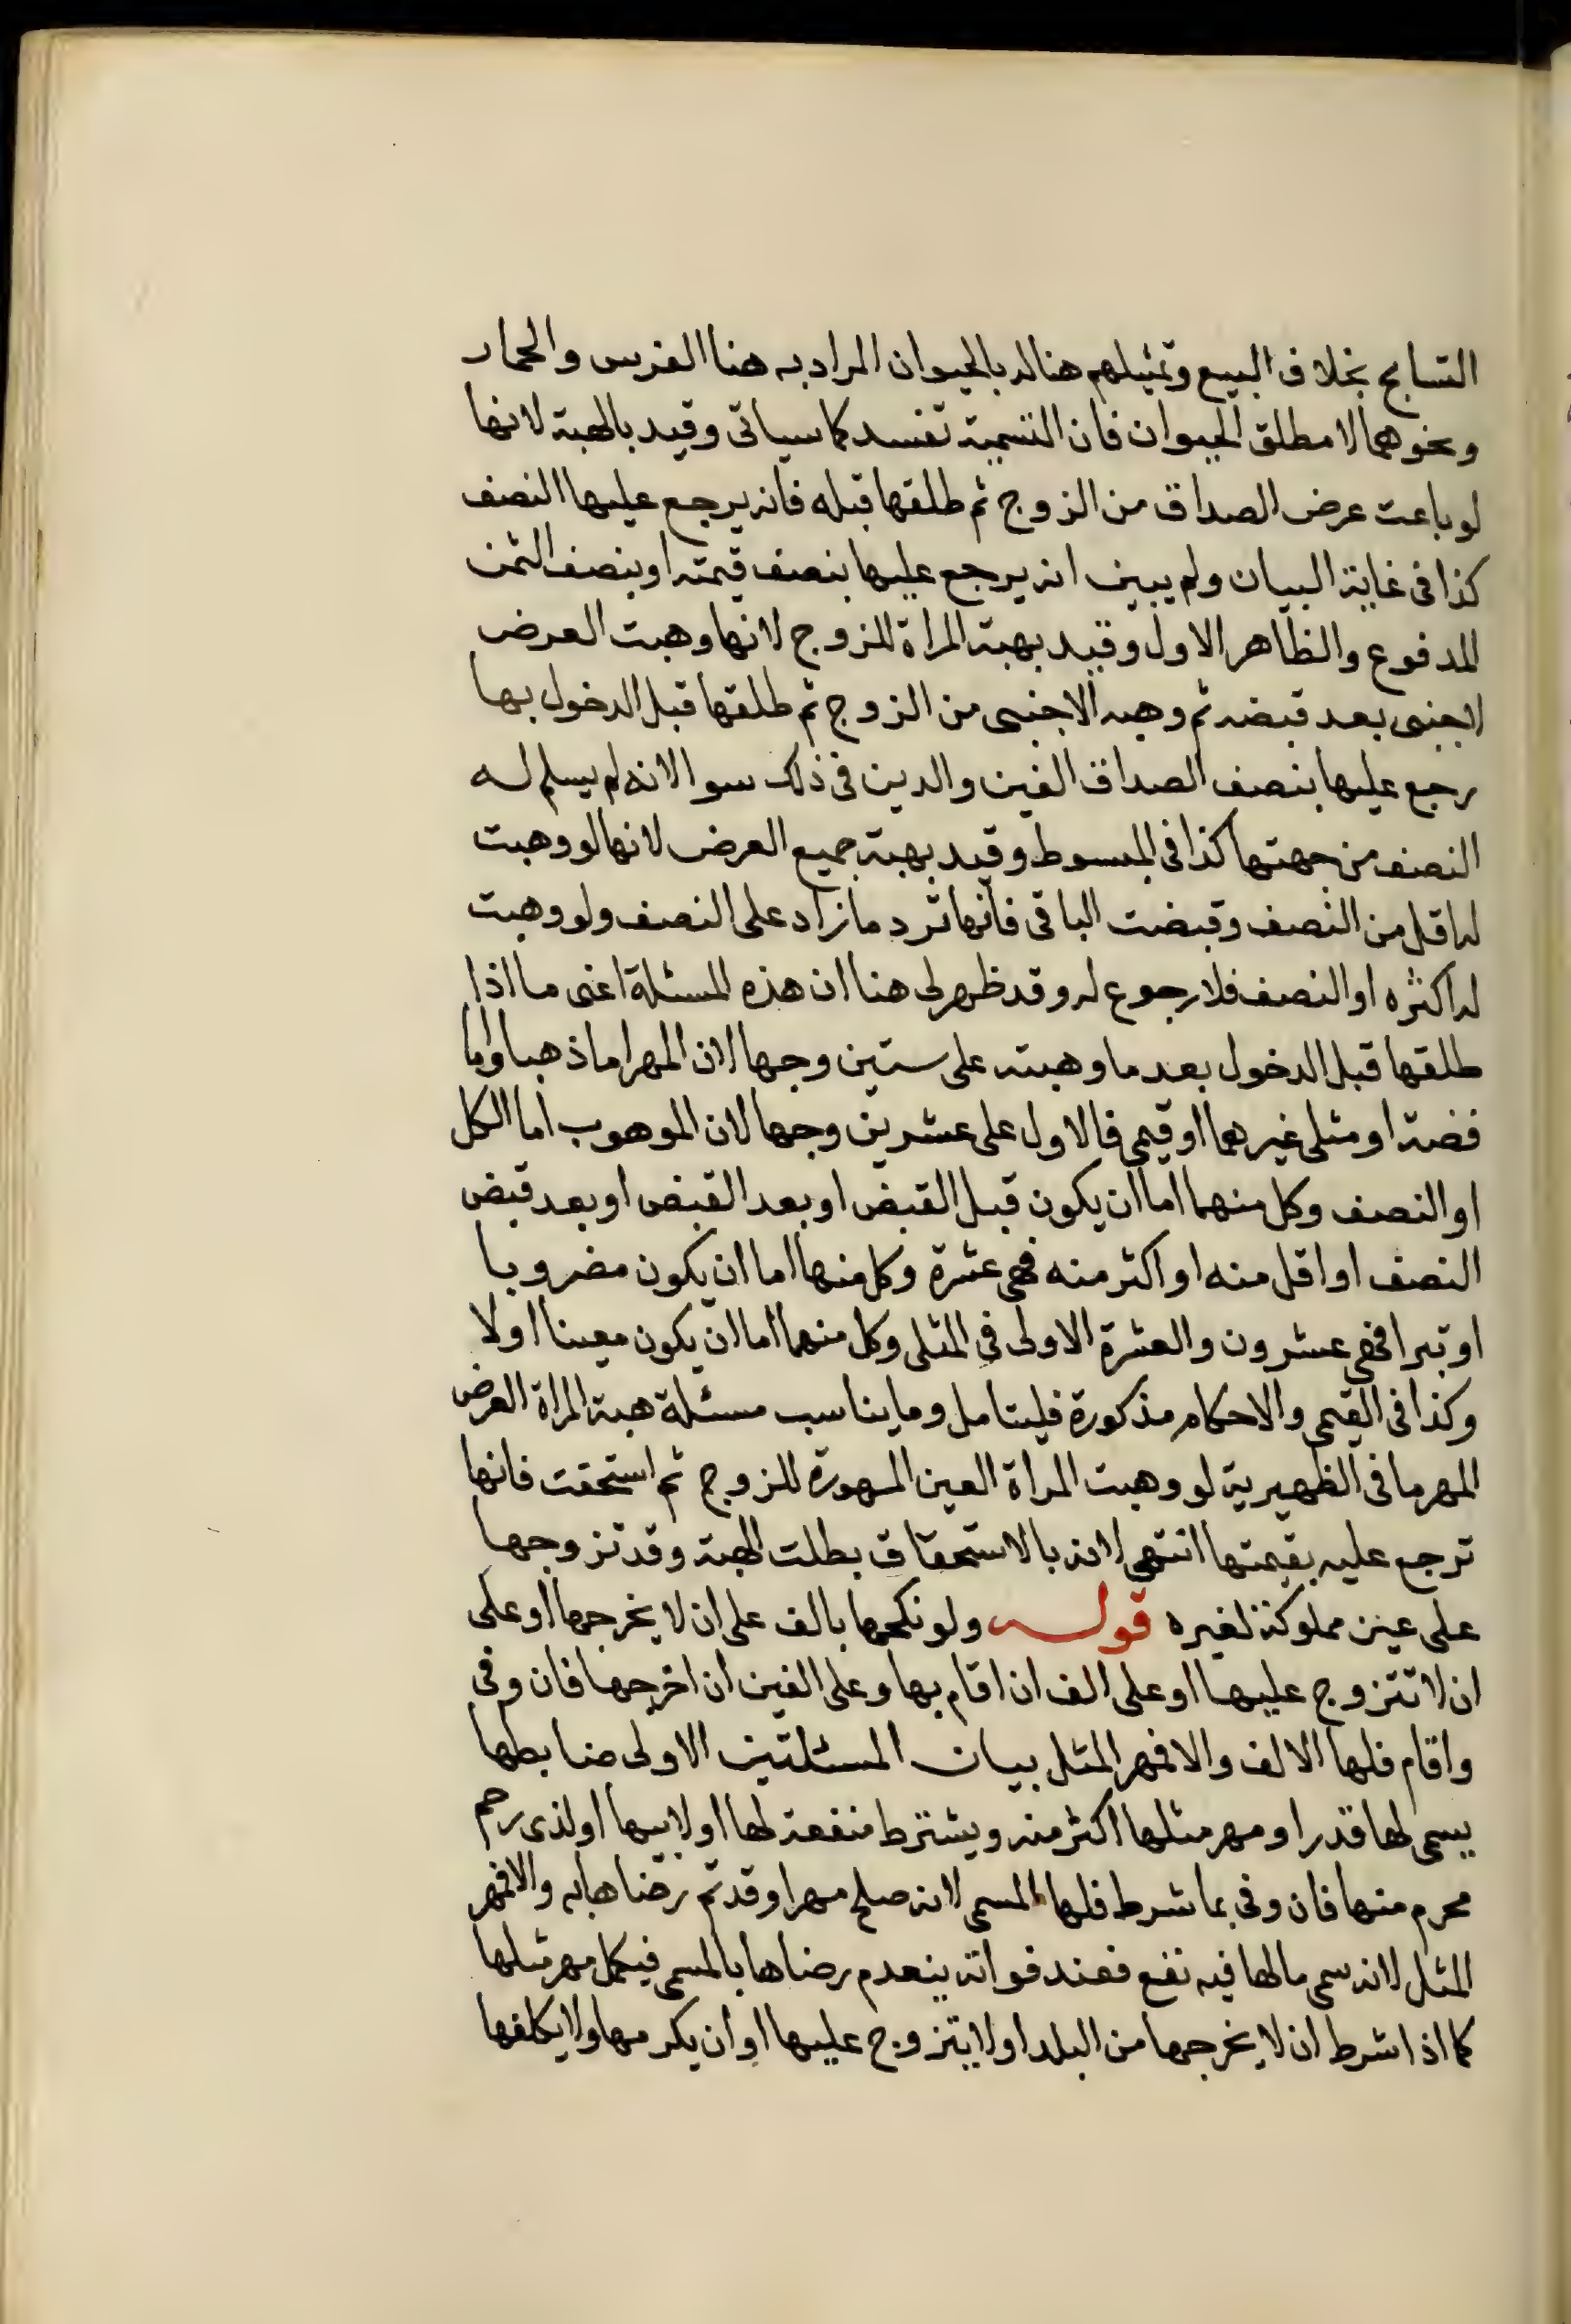 التسامح بخلاف البيع وتمثيلهم هنا له بالحيوان المراد به هنا الفرس والحمار
ونحوهما لا مطلق الحيوان فان التسمية تفسد كما سياتى وقيد بالهبة لانها
لو باعت عرض الصداق من الزوج ثم طلقها قبله فانه يرجع عليها النصف
كذا فى غاية البيان ولم يبين انه يرجع عليها بنصف قيمته او بنصف الثمن
المدفوع والظاهر الاول وقيد بهبة المراة للزوج لانها وهبت العرض
لاجنبى بعد قبضه ثم وهبه الاجنبى من الزوج ثم طلقها قبل الدخول بها
رجع عليها بنصف الصداق العين والدين فى ذلك سوا لانه لم يسلم له
النصف من جهتها كذا فى المبسوط وقيد بهبة جميع العرض لانها لو وهبت
له اقل من النصف وقبضت الباقى فانها ترد ما زاد على النصف ولو وهبت
له اكثره او النصف فلا رجوع له وقد ظهر لى هنا ان هذه المسئلة اعنى ما اذا
طلقها قبل الدخول بعد ما وهبته على ستين وجها لان المهر اما ذهبا واما
فضة او مثلى غيرهما او قيمى فالاول على عشرين وجها لان الموهوب اما الكل
او النصف وكل منهما اما ان يكون قبل القبض او بعد القبض او بعد قبض
النصف او اقل منه او اكثر منه فهى عشرة وكل منها اما ان يكون مضروبا
او تبرا فهى عشرون والعشرة الاولى فى المثلى وكل منهما اما ان يكون معينا او لا
وكذا فى القيمى والاحكام مذكورة فليتامل وما يناسب مسئلة هبة المراة العرض
المهر ما فى الظهيرية لو وهبت المراة العين المهورة للزوج ثم استحقت فانها
ترجع عليه بقيمتها انتهى لانه بالاستحقاق بطلت الهبة وقد تزوجها
على عين مملوكة لغيره قوله ولو نكحها بالف على ان لا يخرجها او على
ان لا تتزوج عليها او على الف ان اقام بها وعلى الفين ان اخرجها فان وفى
واقام فلها الالف والا فمهر المثل بيان المسئلتين الاولى ضابطها
يسمى لها قدرا ومهر مثلها اكثر منه ويشترط منفعة لها او لابيها او لذى رحم
محرم منها فان وفى بما شرط فلها المسمى لانه صلح مهرا وقد تم رضاها به والا فمهر
المثل لانه سمى ما لها فيه نفع فعند فواته ينعدم رضاها بالمسمى فيكمل مهر مثلها
كما اذا شرط ان لا يخرجها من البلد او لا يتزوج عليها او ان يكرمها ولا يكلفها